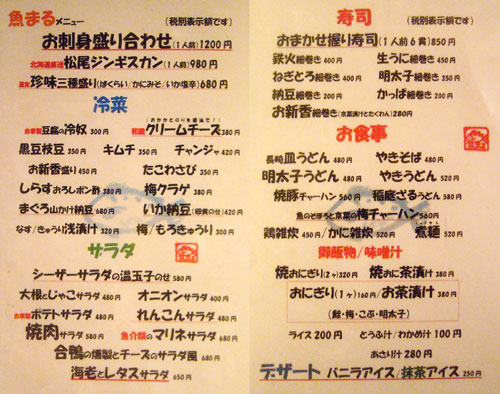 魚まるメニュー (税別表示額です)
お刺身盛り合わせ(1人前)1200円
北海道直送 松尾ジンギスカン(1人前)980円
珍味三種盛り(ばくらい/かにみそ/いか塩辛)680円
冷菜
自家製 豆腐の冷奴 300円
(おかかとのりを醤油で!!)
和風クリームチーズ380円
黒豆枝豆 350円 キムチ 350円 チャンジャ 420円
お新香盛り450円 たこわさび 350円
しらすおろしポン酢 380円 梅クラゲ 380円
まぐろ山かけ納豆 680円 いか納豆(卵黄のせ)420円
なす/きゅうり浅漬け 320円 梅/もろきゅうり 300円
サラダ
シーザーサラダの温玉子のせ 580円
大根とじゃこサラダ 480円 オニオンサラダ 400円
自家製 ポテトサラダ 480円 れんこんサラダ 480円
焼肉サラダ 580円 魚介類のマリネサラダ 680円
合鴨の燻製とチーズのサラダ風 680円
海老とレタスサラダ 650円
寿司 (税別表示額です)
おまかせ握り寿司(1人前 6貫)850円
鉄火細巻き 410円 生うに細巻き 450円
ねぎとろ細巻き 340円 明太子細巻き 350円
納豆細巻き 200円 かっぱ細巻き 200円
お新香細巻き(京菜漬けとたくわん)280円
お食事
長崎皿うどん 480円 やきそば 480円
明太子うどん 480円 やきうどん 520円
焼豚チャーハン 560円 稲庭ざるうどん 580円
魚のそぼろと京菜の梅チャーハン560円
鶏雑炊 450円/かに雑炊 520円 煮麺 520円
御飯物/味噌汁
焼おにぎり(2ヶ)320円 焼おに茶漬け 380円
おにぎり(1ヶ)160円/お茶漬け 380円
(鮭・梅・こぶ・明太子)
ライス 200円 とうふ汁/わかめ汁 100円
あさり汁 280円
デザート バニラアイス/抹茶アイス 250円